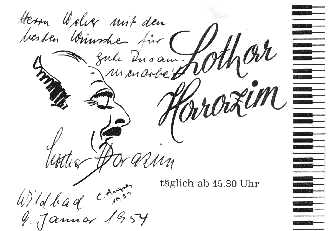 Herrn Weber mit den
besten Wünschen für
gute Zusam-
menarbeit
Lothar
Harazim
Lothar Harazim
täglich ab 15.30 Uhr
Wildbad
9. Januar 1954